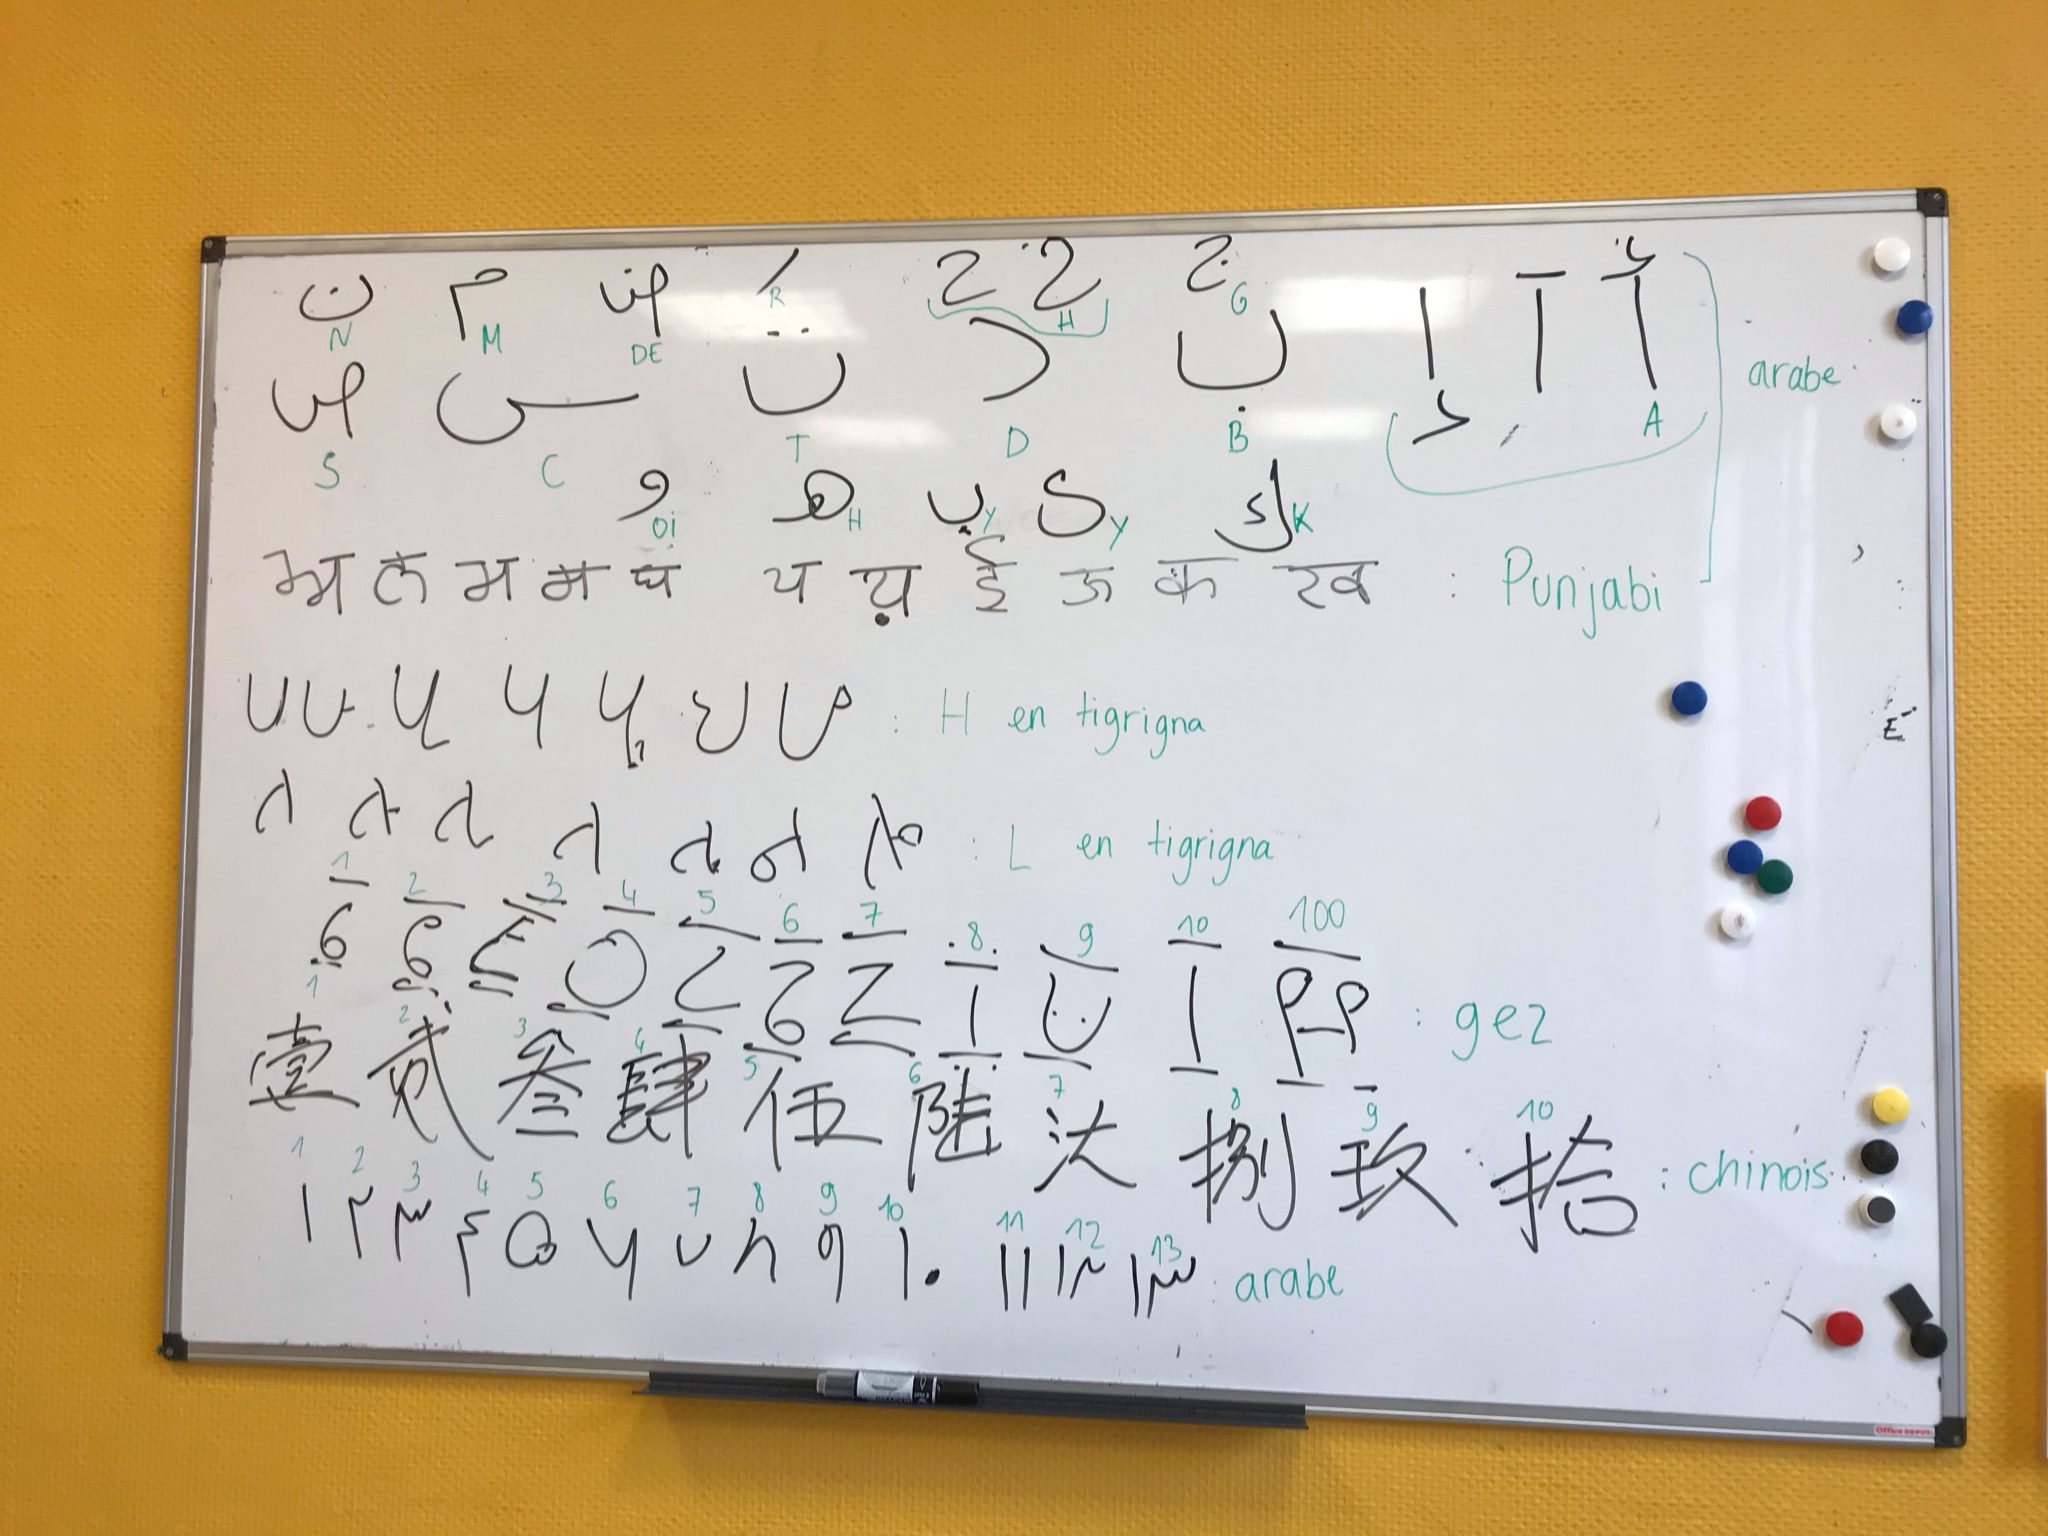 ن م ض ر ح خ ج إ آ أ
N M DE R H G
ص س ت د ب : arabe
S C T D B A
و ه ي ي ك
oi H Y Y K
म म य य़ ई ऊ क ख : Punjabi
ሀ ሁ ሂ ሃ ሄ ህ ሆ : H en tigrigna
ለ ሉ ሊ ላ ሌ ል ሎ : L en tigrigna
1 2 3 4 5 6 7 8 9 10 100
፩ ፪ ፫ ፬ ፭ ፮ ፯ ፰ ፱ ፲ ፻ : gez
1 2 3 4 5 6 7 8 9 10
壹 贰 叁 肆 伍 陆 汏 捌 玖 拾 : chinois
1 2 3 4 5 6 7 8 9 10 11 12 13
١ ٢ ٣ ٤ ٥ ٦ ٧ ٨ ٩ ١٠ ١١ ١٢ ١٣ : arabe
É
Office DEPOT